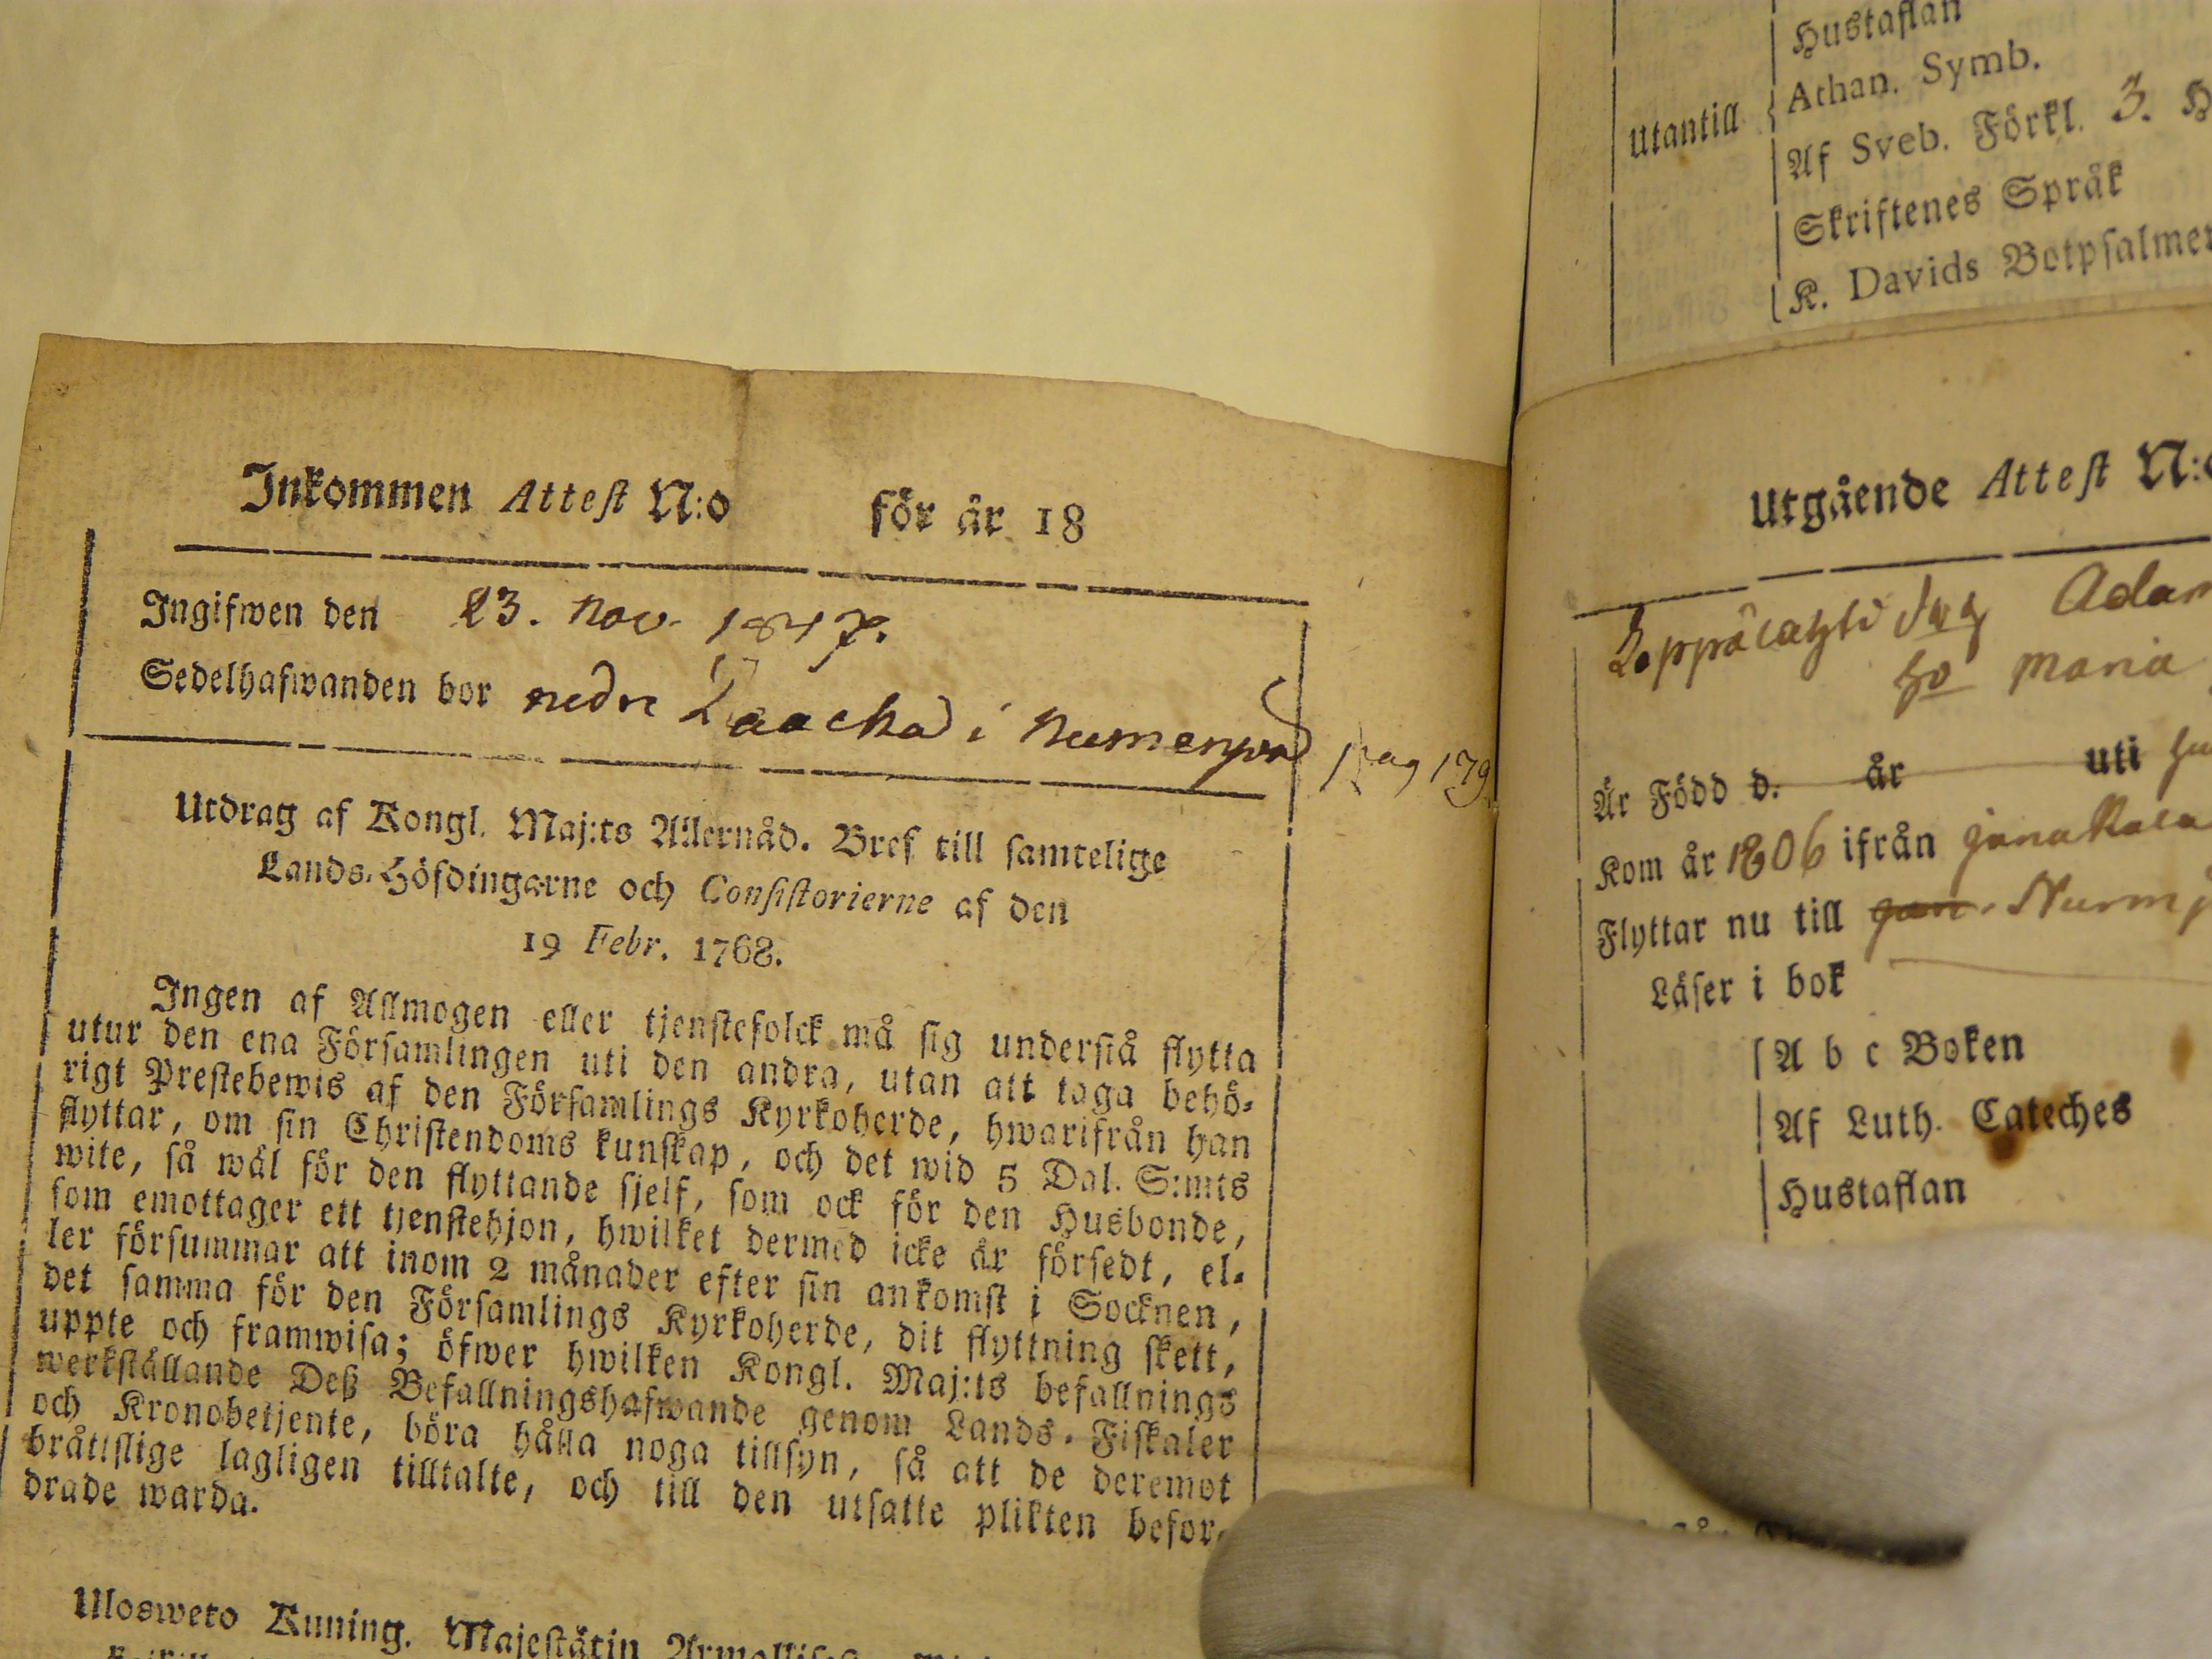 Inkommen Attest N:o för år 18
Ingifwen den 23. Nov. 1847.
Sedelhafwanden bor nedre i
Pag 179
Utdrag af Kongl. Maj:ts Allernåd. Bref till samtelige
Lands-Höfdingarne och Consistorierne af den
19 Febr. 1768.
Ingen af Allmogen eller tjenstefolck må sig understå flytta
utur den ena Församlingen uti den andra, utan att taga behö-
rigt Prestebewis af den Församlings Kyrkoherde, hwarifrån han
flyttar, om sin Christendoms kunskap, och det wid 5 Dal. S:mts
wite, så wäl för den flyttande sjelf, som ock för den Husbonde,
som emottager ett tjenstehjon, hwilket dermed icke är försedt, el-
ler försummar att inom 2 månader efter sin ankomst i Socknen,
det samma för den Församlings Kyrkoherde, dit flyttning skett,
uppte och framwisa; öfwer hwilken Kongl. Maj:ts befallnings
werkställande Deß Befallningshafwande genom Lands-Fiskaler
och Kronobetjente, böra hålla noga tillsyn, så att de deremot
bråttslige lagligen tilltalte, och till den utsatte plikten befor-
drade warda.
Ulosweto Kuning. Majestätin
Hustaflan
Athan. Symb.
Utantill Af Sveb. Förkl. 3. H
Skriftenes Språk
K. Davids Botpsalmer
Utgående Attest N:o
Adam
Maria
Är Född d. år uti
Kom år 1806 ifrån Janakala
Flyttar nu till Nurmj
Läser i bok
A b c Boken
Af Luth. Cateches
Hustaflan